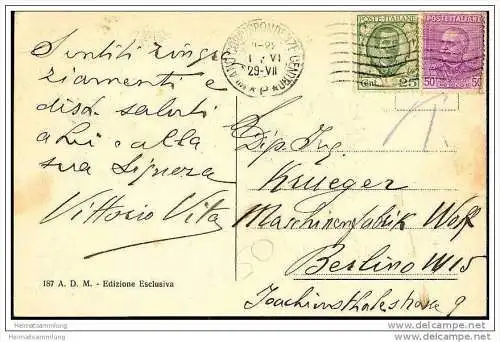 Sentiti ringra
ziamenti e
dist. saluti
a Lei e alla
sua Signora
Vittorio Vita
187 A. D. M. - Edizione Esclusiva
POSTE ITALIANE
Cent. 25
POSTE ITALIANE
50 50
CORRISPONDENZE
29-VII
Dip. Ing.
Krueger
Maschinenfabrik Wolf
Berlino W15
Joachimsthalestrasse 9
Heimatsammlung